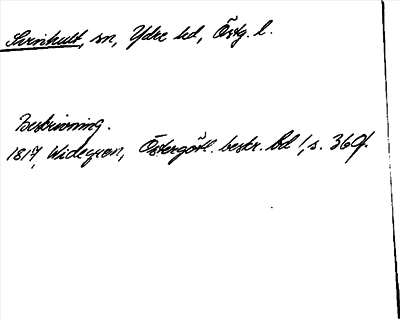 Svinhult, sn, Ydre hd, Östg. l.
Beskrivning.
1817, Widegren, Östergötl. beskr. bd 1, s. 369.